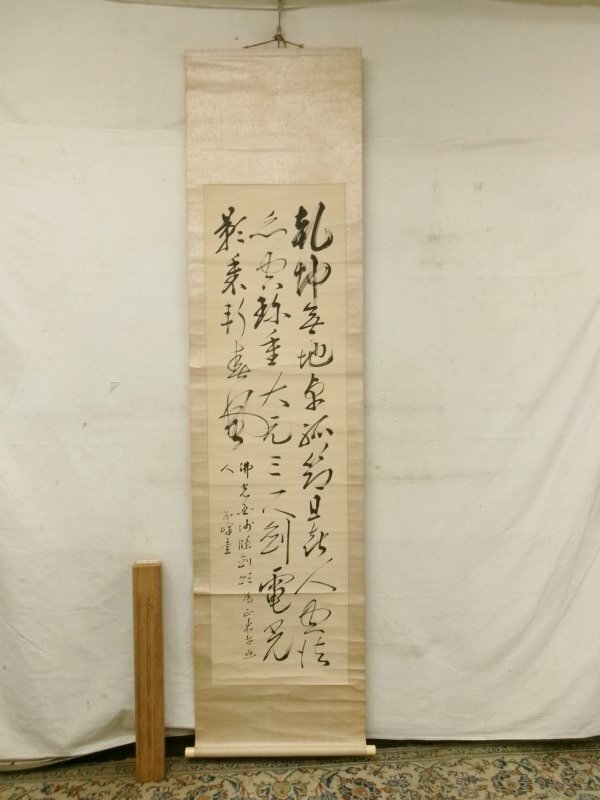 乾坤無地卓孤筇且喜人空法
亦空珍重大元三尺劍電光
影裏斬春風
佛光国師臨劍頌為
人
書